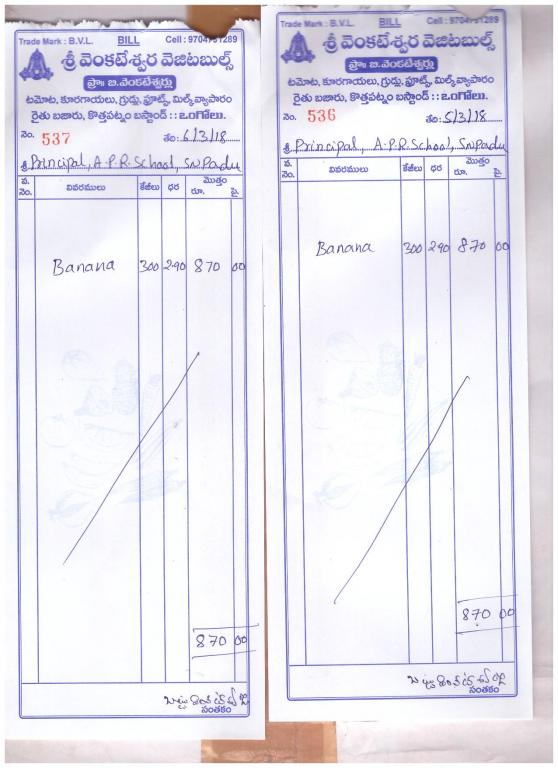 Trade Mark : B.V.L. BILL Cell : 9704751289
శ్రీ వెంకటేశ్వర వెజిటబుల్స్
ప్రొః బి.వెంకటేశ్వర్లు
టమోట, కూరగాయలు, గ్రుడ్లు, ఫ్రూట్స్, మిల్క్ వ్యాపారం
రైతు బజారు, కొత్తపట్నం బస్టాండ్ :: ఒంగోలు.
నెం. 537 తేది: 6/3/18
శ్రీ Principal, A.P.R.School, S.N.Padu
వ. నెం. వివరములు కేజీలు ధర మొత్తం రూ. పై.
Banana 300 2.90 870 00
870 00
సంతకం
Trade Mark : B.V.L. BILL Cell : 9704751289
శ్రీ వెంకటేశ్వర వెజిటబుల్స్
ప్రొః బి.వెంకటేశ్వర్లు
టమోట, కూరగాయలు, గ్రుడ్లు, ఫ్రూట్స్, మిల్క్ వ్యాపారం
రైతు బజారు, కొత్తపట్నం బస్టాండ్ :: ఒంగోలు.
నెం. 536 తేది: 5/3/18
శ్రీ Principal, A.P.R.School, S.N.Padu
వ. నెం. వివరములు కేజీలు ధర మొత్తం రూ. పై.
Banana 300 2.90 870 00
870 00
సంతకం